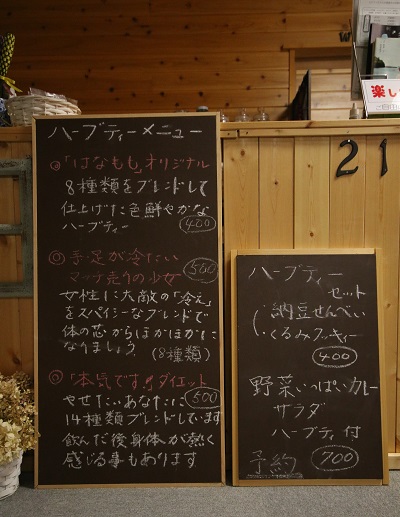 ハーブティーメニュー
◎「はなもも」オリジナル
8種類をブレンドして
仕上げた色鮮やかな
ハーブティー 400
◎手足が冷たい
マッチ売りの少女 500
女性に大敵の「冷え」
をスパイシーなブレンドで
体の芯からほかほかに
なりましょう (8種類)
◎「本気です!!」ダイエット
やせたいあなたに 500
14種類ブレンドしています
飲んだ後身体が熱く
感じる事もあります
21
楽し
ハーブティー
セット
納豆せんべい
くるみクッキー
400
野菜いっぱいカレー
サラダ
ハーブティ付
予約 700